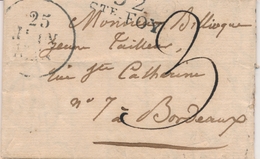 32
STE FOY
25
Monsieur Billioque
jeune Tailleur,
rue Ste Catherine
n° 7 à Bordeaux
3